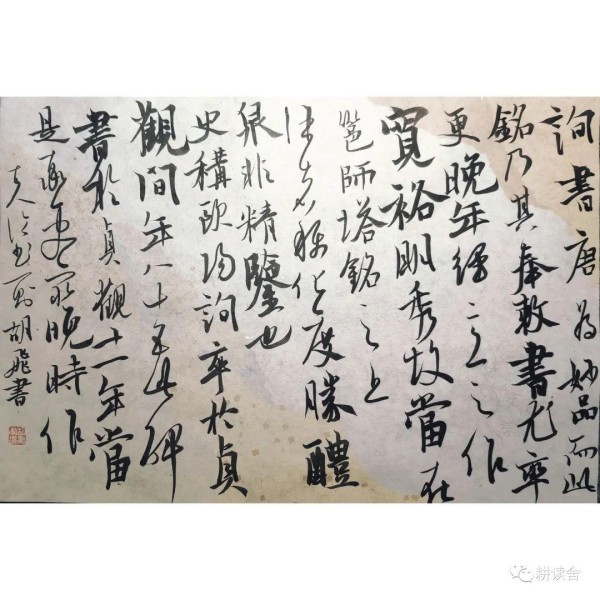 詢書唐為妙品而此
銘乃其奉敕書尤率
更晚年經意之作
寬裕明秀故當在
邕師塔銘之上
者稱化度勝醴
泉非精鑒也
史稱歐陽詢卒於貞
觀間年八十五此碑
書於貞觀十一年當
是率更最晚時作
胡飛書
耕读舍